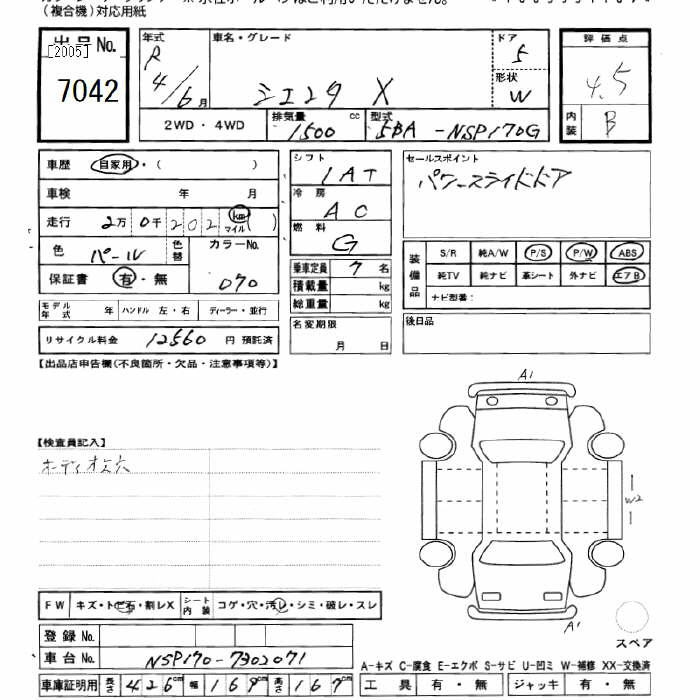 （複合機）対応用紙
出品No.
[2005]
7042
年式 R 4/6月
車名・グレード シエンタ X
ドア 5
形状 W
評価点 4.5
内装 B
2WD・4WD
排気量 1500 cc
型式 5BA-NSP170G
車歴 自家用・（ ）
車検 年 月
走行 2万 0千 202 km マイル ( )
色 パール 色替
カラーNo. 070
保証書 有・無
シフト 1AT
冷房 AC
燃料 G
乗車定員 7 名
積載量 kg
総重量 kg
セールスポイント
パワースライドドア
装備品
S/R 純A/W P/S P/W ABS
純TV 純ナビ 革シート 外ナビ エアB
ナビ型番：
モデル年式 年 ハンドル 左・右 ディーラー・並行
リサイクル料金 12560 円 預託済
名変期限 月 日
後日品
【出品店申告欄(不良箇所・欠品・注意事項等)】
A1
【検査員記入】
オーディオ穴
W2
A1
スペア
FW キズ・トビ石・割レX シート内装 コゲ・穴・汚レ・シミ・破レ・スレ
登録No.
車台No. NSP170-7302071
車庫証明用 長さ 426cm 幅 169cm 高さ 169cm
A-キズ C-腐食 E-エクボ S-サビ U-凹ミ W-補修 XX-交換済
工具 有・無 ジャッキ 有・無